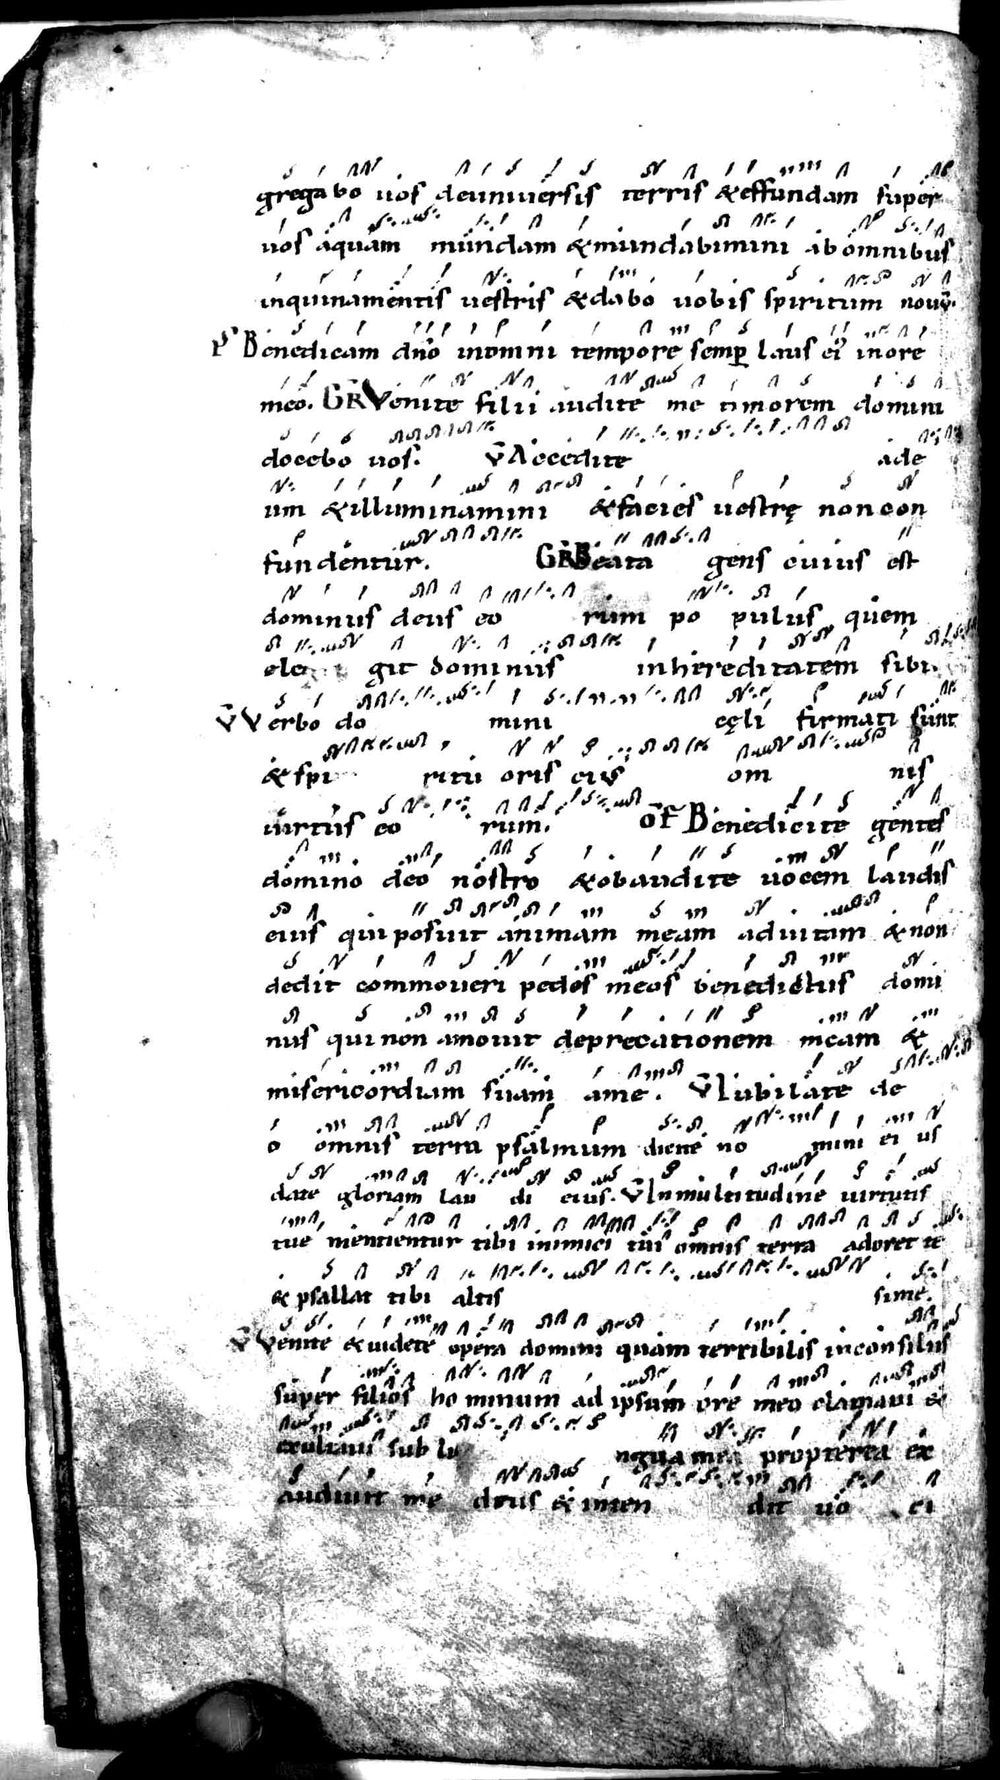 gregabo uos deuniuersis terris &effundam super
uos aquam mundam &mundabimini ab omnibus
inquinamentis uestris &dabo uobis spiritum nouū.
Ps Benedicam dn̄o inomni tempore semꝑ laus ei' inore
meo. GR Venite filii audite me timorem domini
docebo uos. V̄ Accedite ade
um &illuminamini &facies uestrę noncon
fundentur. GR Beata gens cuius est
dominus deus eo rum po pulus quem
ele git dominus inhereditatem sibi.
V̄ Verbo do mini cęli firmati sunt
&spi ritu oris eius om nis
uirtus eo rum. OF Benedicite gentes
domino deo nostro &obaudite uocem laudis
eius qui posuit animam meam aduitam &non
dedit commoueri pedes meos benedictus domi
nus qui non amouit deprecationem meam &
misericordiam suam ame. V̄ Iubilate de
o omnis terra psalmum dicite no mini ei us
date gloriam lau di eius. V̄ Inmultitudine uirtutis
tue mentientur tibi inimici tui omnis terra adoret te
&psallat tibi altis sime.
V̄ Venite &uidete opera domini quam terribilis inconsiliis
super filios ho minum ad ipsum ore meo clamaui &
exultaui sub li ngua mea propterea ex
audiuit me deus &inten dit uo ci